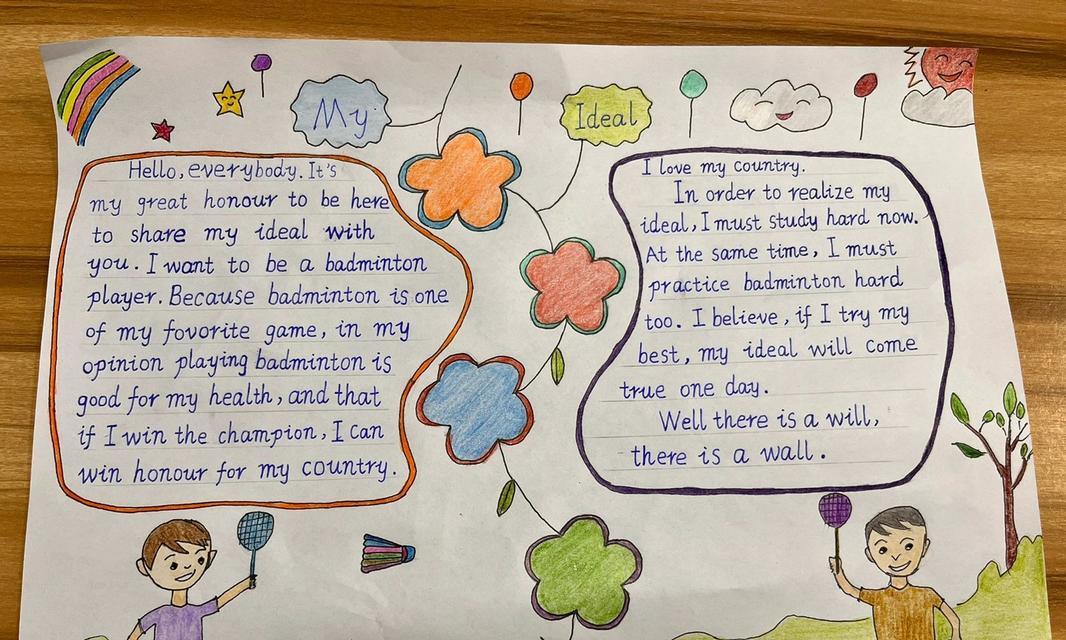 My
Ideal
Hello, everybody. It's
my great honour to be here
to share my ideal with
you. I want to be a badminton
player. Because badminton is one
of my fovorite game, in my
opinion playing badminton is
good for my health, and that
if I win the champion, I can
win honour for my country.
I love my country.
In order to realize my
ideal, I must study hard now.
At the same time, I must
practice badminton hard
too. I believe, if I try my
best, my ideal will come
true one day.
Well there is a will,
there is a wall.